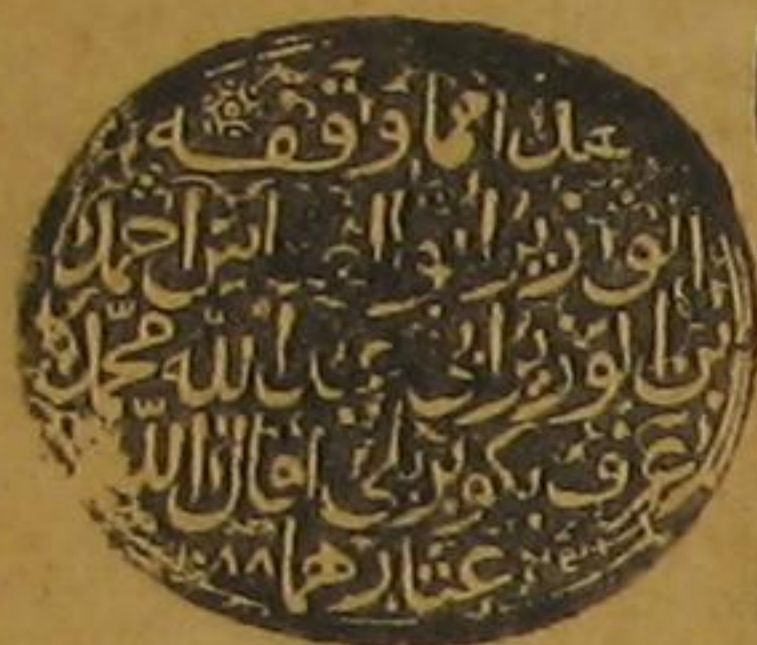 هذا مما وقفه
الوزير أبو العباس أحمد
ابن الوزير أبي عبد الله محمد
عرف بكوبريلي أقال الله
عثارهما ١٠٨٨